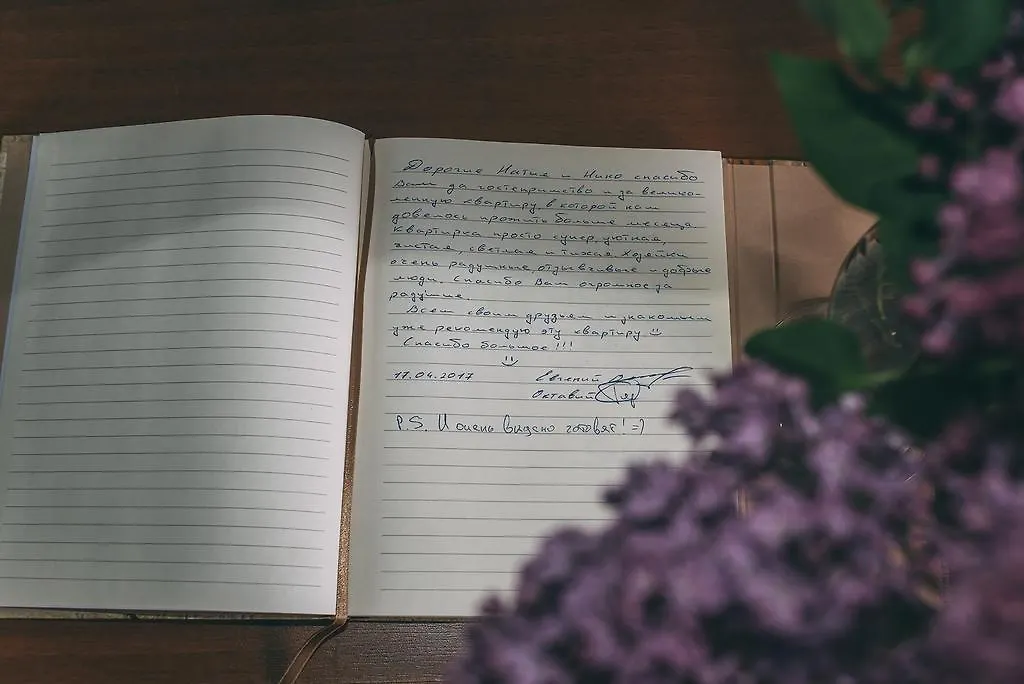 Дорогие Натия и Нико спасибо
Вам за гостеприимство и за велико-
лепную квартиру в которой нам
довелось прожить больше месяца.
Квартирка просто супер, уютная,
чистая, светлая и тихая. Хозяйки
очень радушные, отзывчивые и добрые
люди. Спасибо Вам огромное за
радушие.
Всем своим друзьям и знакомым
уже рекомендую эту квартиру
Спасибо большое!!!
17.04.2017 Евгений
Октавий
P.S. И очень вкусно готовят! =)